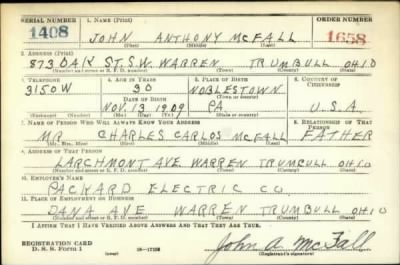 SERIAL NUMBER 1. NAME (Print) ORDER NUMBER
1408 JOHN ANTHONY McFALL 1658
(First) (Middle) (Last)
2. ADDRESS (Print)
873 OAK ST. S.W. WARREN TRUMBULL OHIO
(Number and street or R. F. D. number) (Town) (County) (State)
3. TELEPHONE 4. AGE IN YEARS 5. PLACE OF BIRTH 6. COUNTRY OF CITIZENSHIP
3150W 30 NOBLESTOWN
DATE OF BIRTH (Town or county)
NOV. 13 1909 PA. U.S.A.
(Mo.) (Day) (Yr.) (State or country)
7. NAME OF PERSON WHO WILL ALWAYS KNOW YOUR ADDRESS 8. RELATIONSHIP OF THAT PERSON
MR CHARLES CARLOS McFALL FATHER
(Mr., Mrs., Miss) (First) (Middle) (Last)
9. ADDRESS OF THAT PERSON
LARCHMONT AVE WARREN TRUMBULL OHIO
(Number and street or R. F. D. number) (Town) (County) (State)
10. EMPLOYER'S NAME
PACKARD ELECTRIC CO.
11. PLACE OF EMPLOYMENT OR BUSINESS
DANA AVE WARREN TRUMBULL OHIO
(Number and street or R. F. D. number) (Town) (County) (State)
I AFFIRM THAT I HAVE VERIFIED ABOVE ANSWERS AND THAT THEY ARE TRUE.
REGISTRATION CARD
D. S. S. Form 1 (over) John A. McFall
(Registrant's signature)